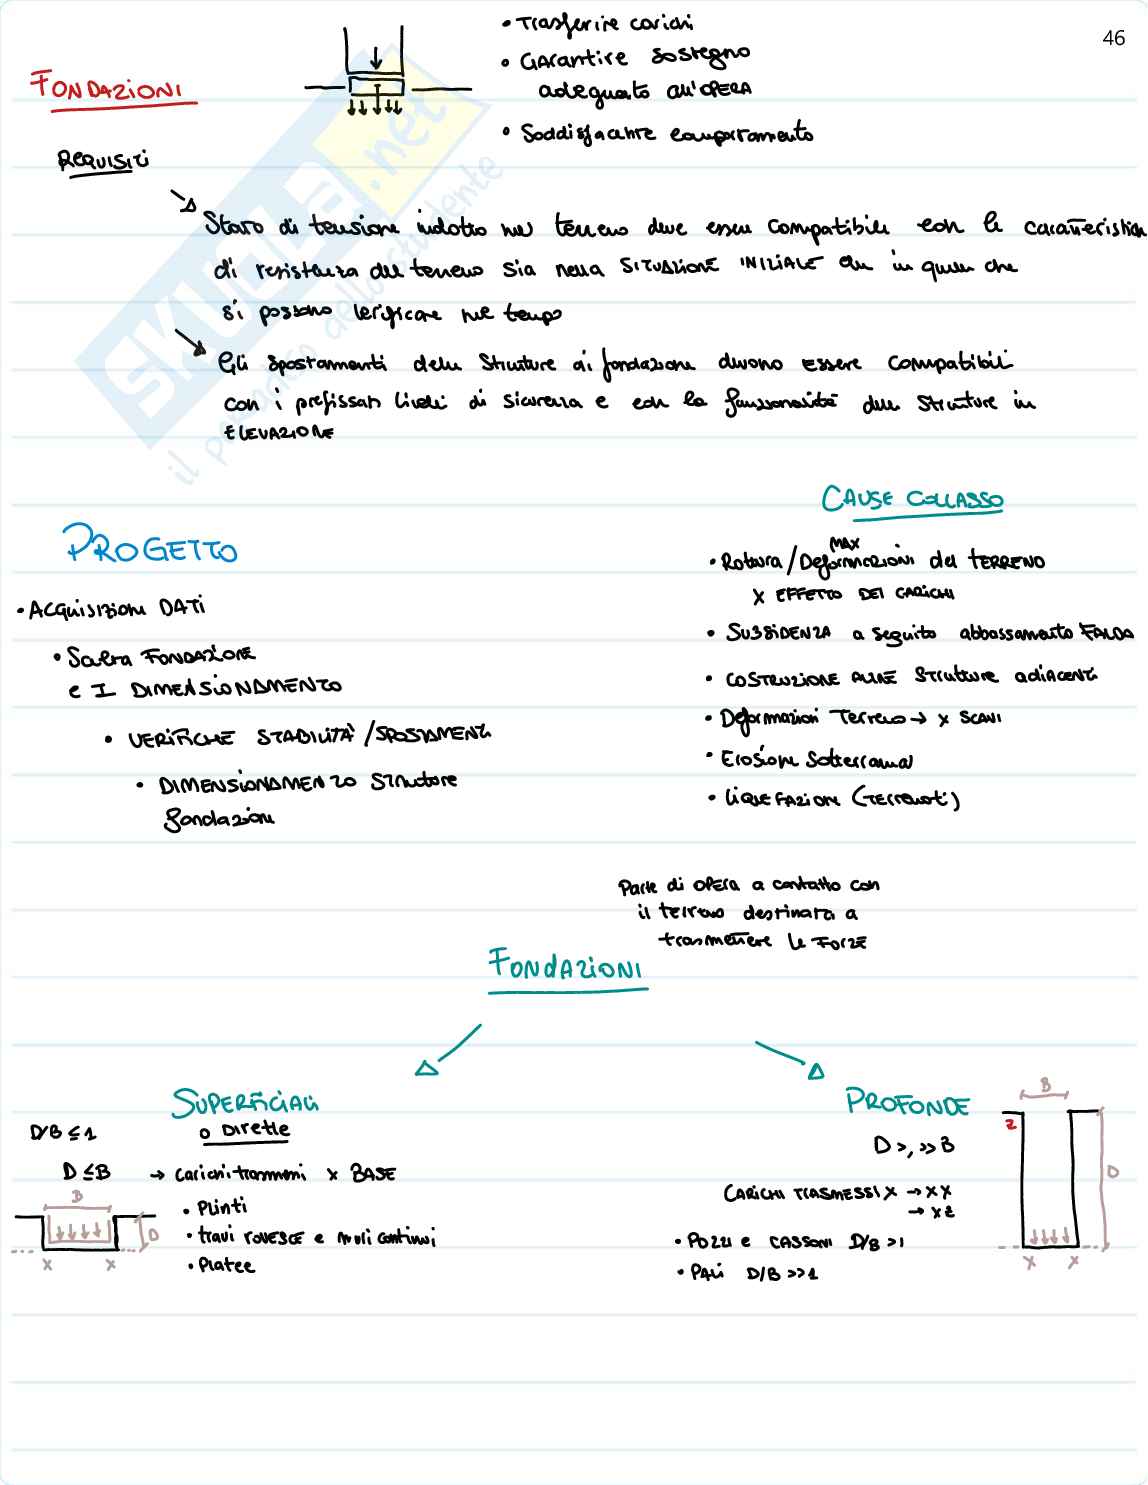 46
FONDAZIONI
• Trasferire carichi
• Garantire sostegno
adeguato all'OPERA
• Soddisfacente comportamento
REQUISITI
Stato di tensione indotto nel terreno deve essere compatibile con le caratteristiche
di resistenza del terreno sia nella SITUAZIONE INIZIALE che in quelle che
si possono verificare nel tempo
Gli spostamenti delle strutture di fondazione devono essere compatibili
con i prefissati livelli di sicurezza e con la funzionalità delle strutture in
ELEVAZIONE
SKUOLA.net
il paradiso dello studente
PROGETTO
• Acquisizione DATI
• Scelta FONDAZIONE
e I DIMENSIONAMENTO
• VERIFICHE STABILITÀ / SPOSTAMENTI
• DIMENSIONAMENTO Strutture
fondazioni
CAUSE COLLASSO
MAX
• Rottura / Deformazioni del TERRENO
x EFFETTO DEI CARICHI
• SUBSIDENZA a seguito abbassamento FALDA
• COSTRUZIONE ALTRE strutture adiacenti
• Deformazioni Terreno → x SCAVI
• Erosione Sotterranea
• Liquefazione (terremoti)
Parte di OPERA a contatto con
il terreno destinata a
trasmettere le FORZE
FONDAZIONI
SUPERFICIALI
o Dirette
D/B ≤ 1
D ≤ B → Carichi trasmessi x BASE
B
D
x x
• Plinti
• travi rovesce e muri continui
• Platee
PROFONDE
D >, >> B
CARICHI TRASMESSI x → xx
→ xz
• Pozzi e CASSONI D/B > 1
• PALI D/B >> 1
B
z
D
x x